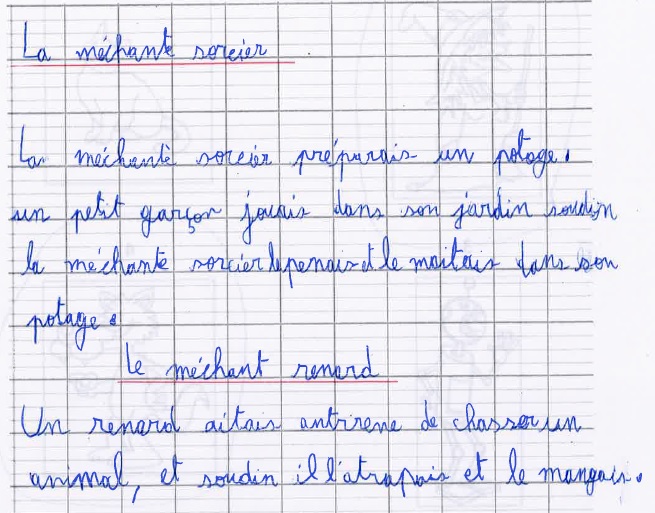 La méchante sorcier
La méchante sorcier préparais un potage.
un petit garçon jouais dans son jardin soudin
la méchante sorcier le penais et le maitais dans son
potage.
Le méchant renard
Un renard aitais antirene de chasser un
animal, et soudin il l'atrapais et le mangais.